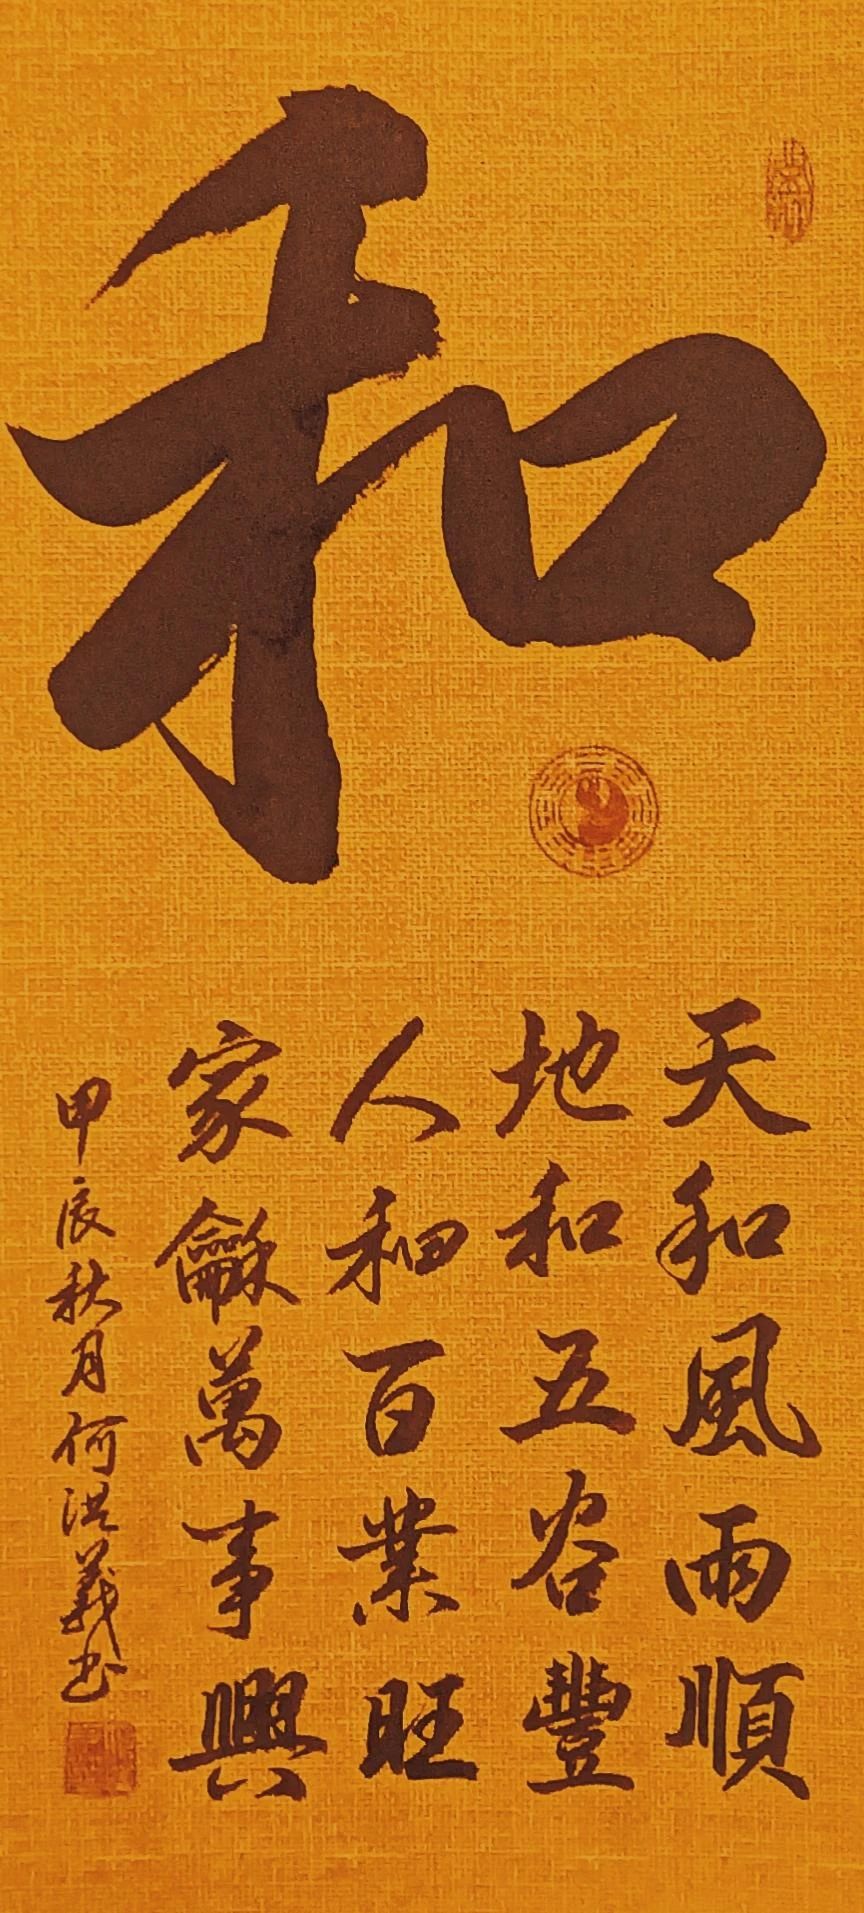 和
天和風雨順
地和五谷豐
人和百業旺
家龢萬事興
甲辰秋月何洪義書